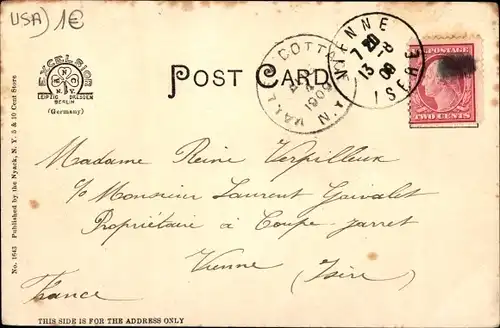 USA) 1€
EXCELSIOR
N.Y.
LEIPZIG DRESDEN
BERLIN
(Germany)
POST CARD
VALLEY COTTA N
1908
VIENNE
7 20
13 8
08
ISERE
POSTAGE
TWO CENTS
No. 1643 Published by the Nyack, N. Y. 5 & 10 Cent Store
Madame Reine Verpilleux
c/o Monsieur Laurent Goivalet
Propriétaire à Coupe-jarret
Vienne (Isère)
France
THIS SIDE IS FOR THE ADDRESS ONLY